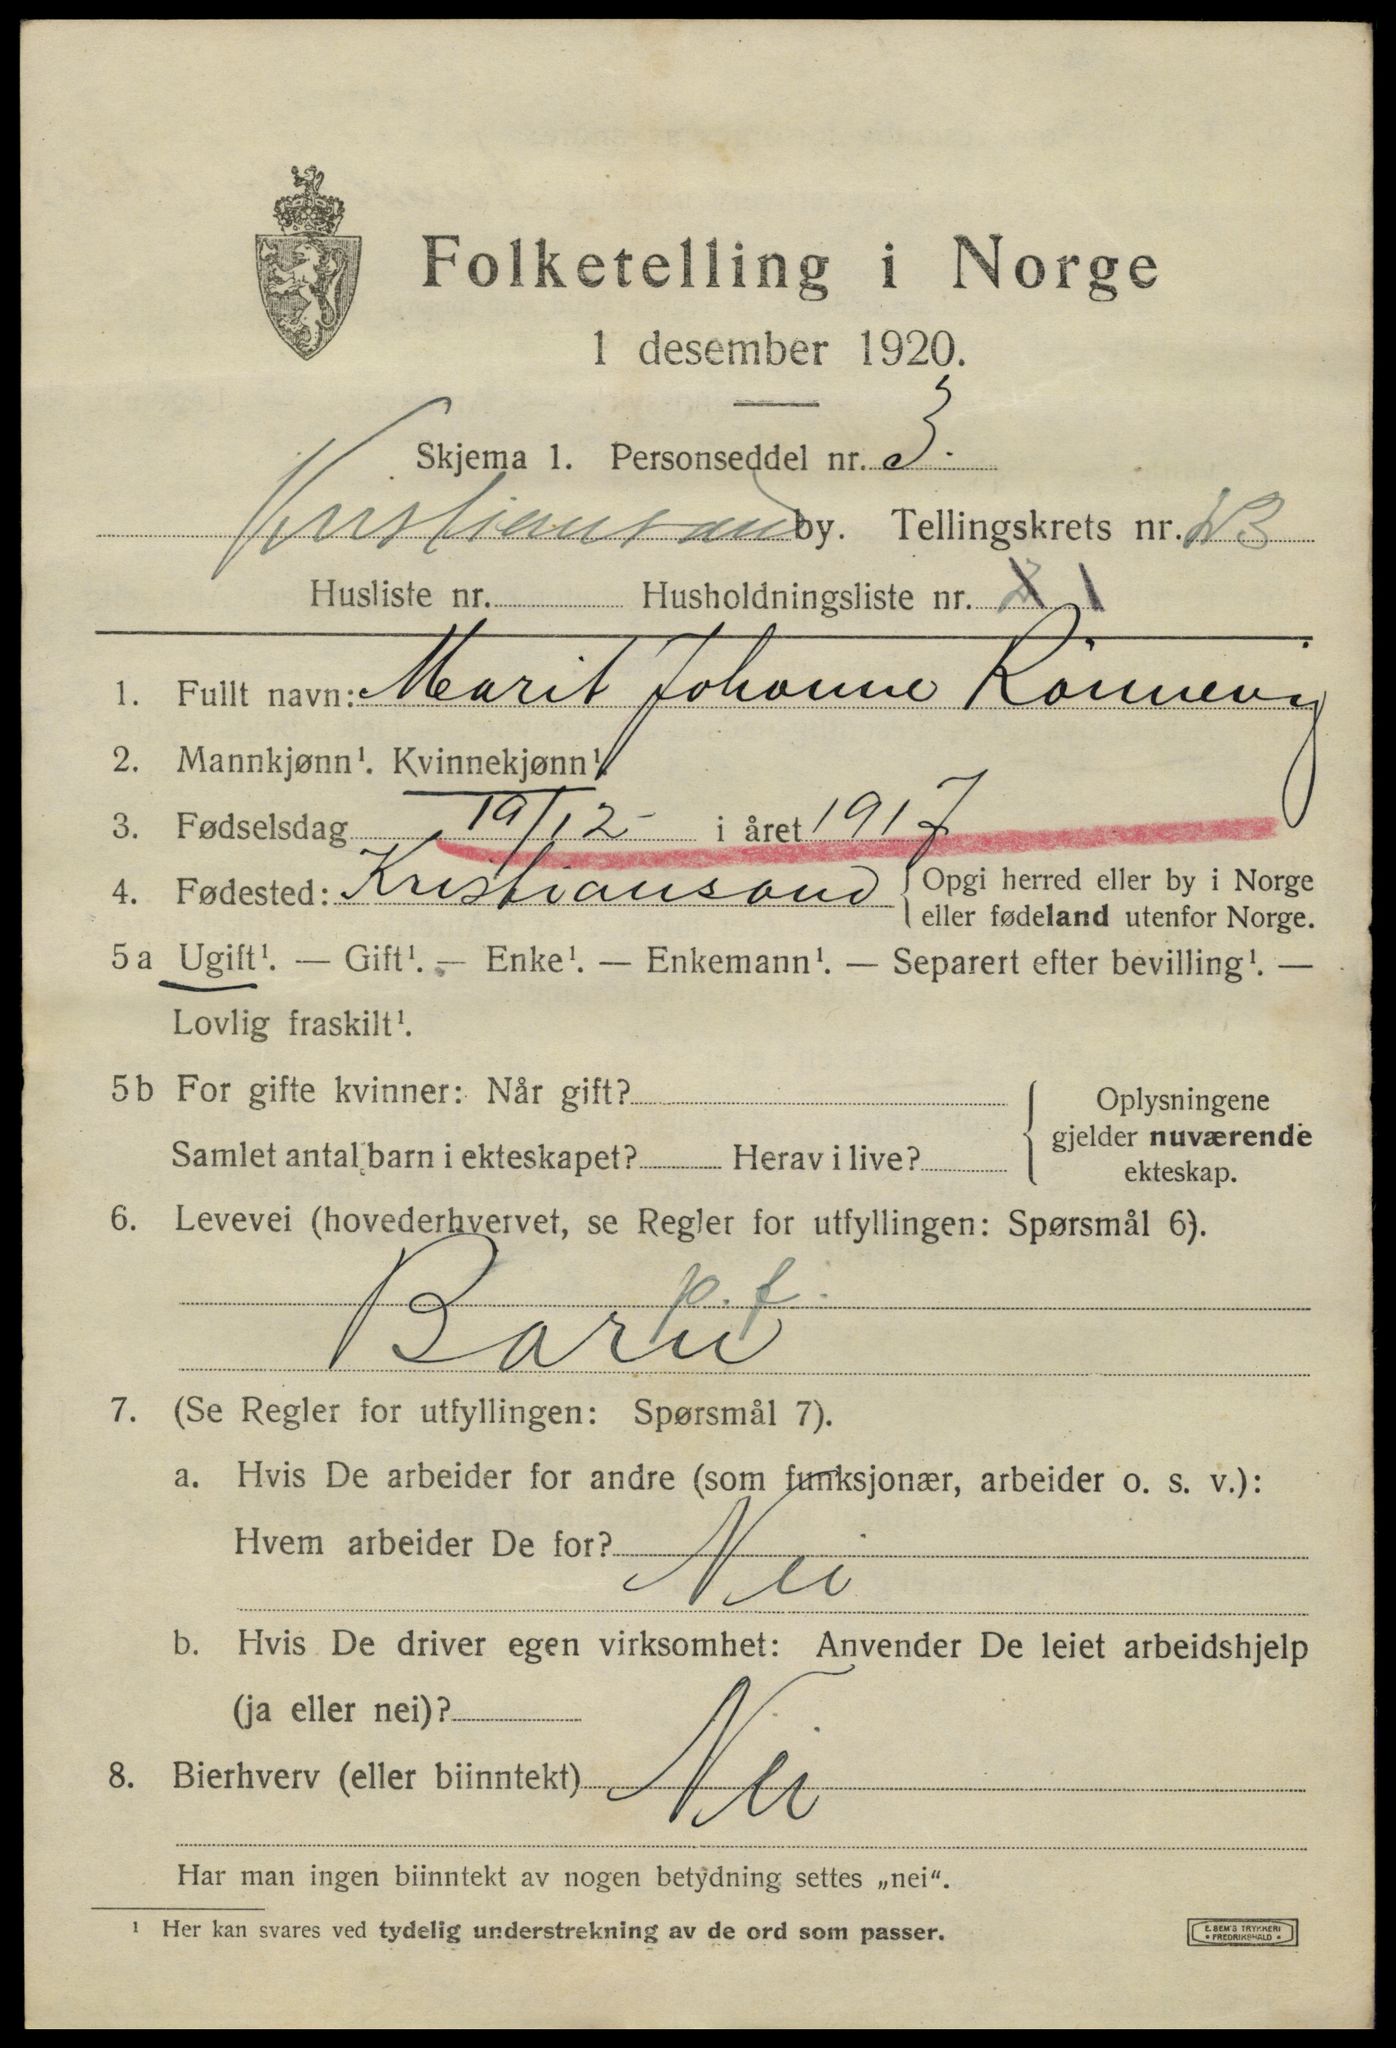 Folketelling i Norge
1 desember 1920.
Skjema 1. Personseddel nr. 3.
Kristiansand by. Tellingskrets nr.
Husliste nr. Husholdningsliste nr. 1
1. Fullt navn: Marit Johanne Rönnevig
2. Mannkjønn¹. Kvinnekjønn¹.
3. Fødselsdag 19/12- i året 1917
4. Fødested: Kristiansand { Opgi herred eller by i Norge
eller fødeland utenfor Norge.
5a Ugift¹. — Gift¹. — Enke¹. — Enkemann¹. — Separert efter bevilling¹. —
Lovlig fraskilt¹.
5b For gifte kvinner: Når gift? { Oplysningene
gjelder nuværende
Samlet antal barn i ekteskapet? Herav i live?
ekteskap.
6. Levevei (hovederhvervet, se Regler for utfyllingen: Spørsmål 6).
p. f.
Barn
7. (Se Regler for utfyllingen: Spørsmål 7).
a. Hvis De arbeider for andre (som funksjonær, arbeider o. s. v.):
Hvem arbeider De for? Nei
b. Hvis De driver egen virksomhet: Anvender De leiet arbeidshjelp
(ja eller nei)?
8. Bierhverv (eller biinntekt) Nei
Har man ingen biinntekt av nogen betydning settes „nei“.
¹ Her kan svares ved tydelig understrekning av de ord som passer.
E. SEM'S TRYKKERI
• FREDRIKSHALD •